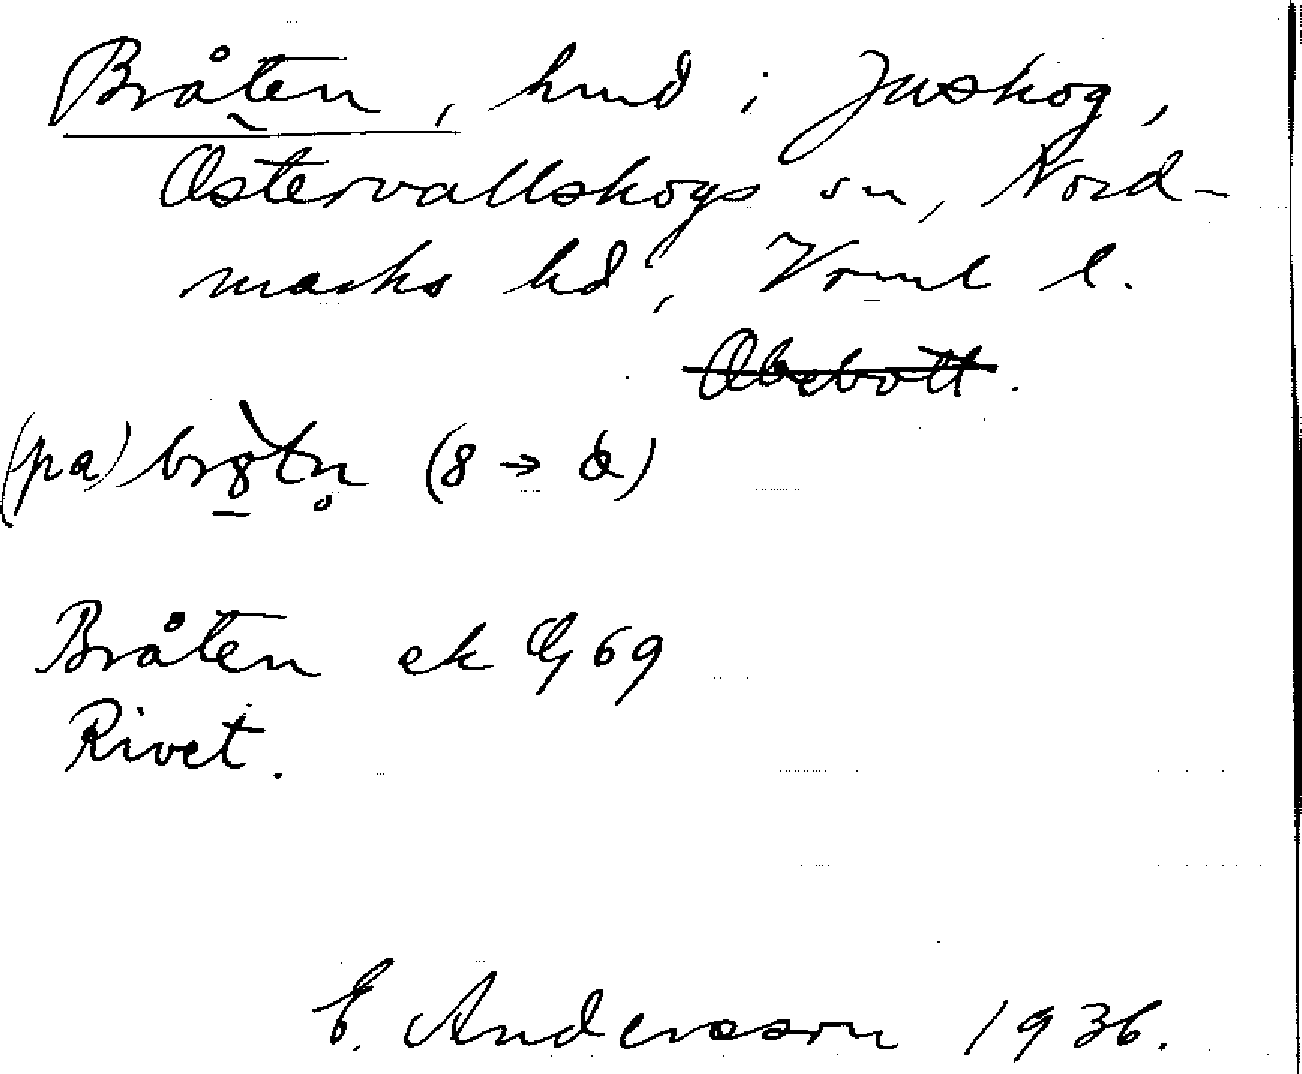 Bråten, hmd i Juskog,
Östervallskogs sn, Nord-
marks hd, Vrml l.
(på) brɔ̀tn̥ (8 → a)
Bråten ek G 69
Rivet.
E. Andersson 1936.